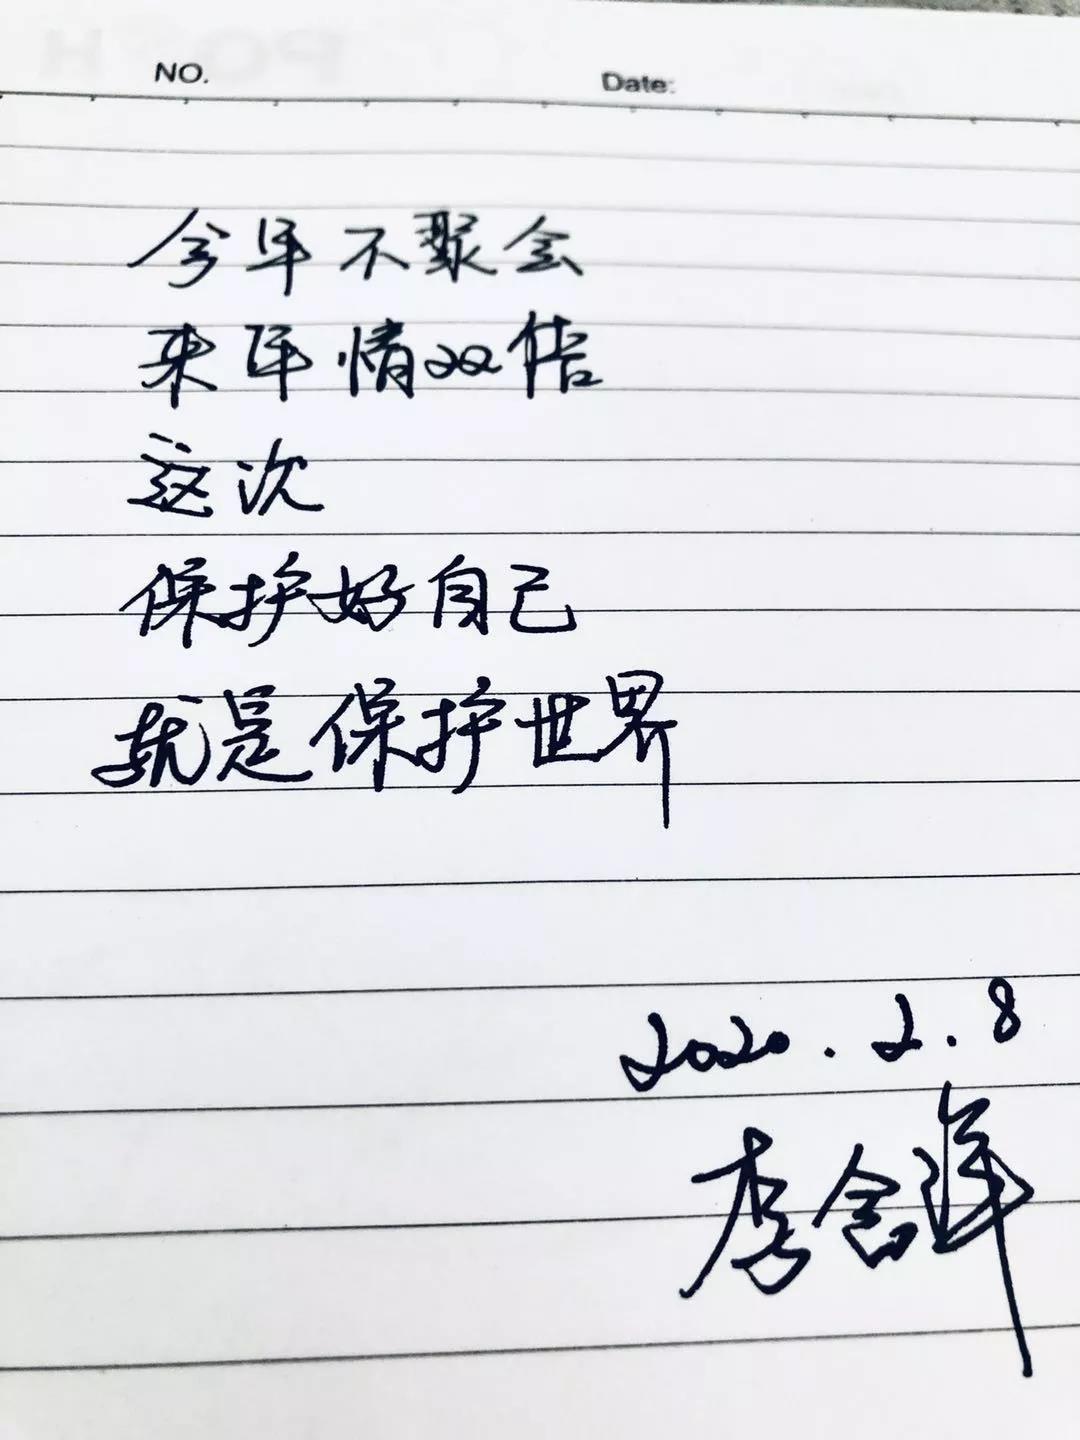 NO. Date:
今年不聚会
来年情双倍
这次
保护好自己
就是保护世界
2020.2.8
李含